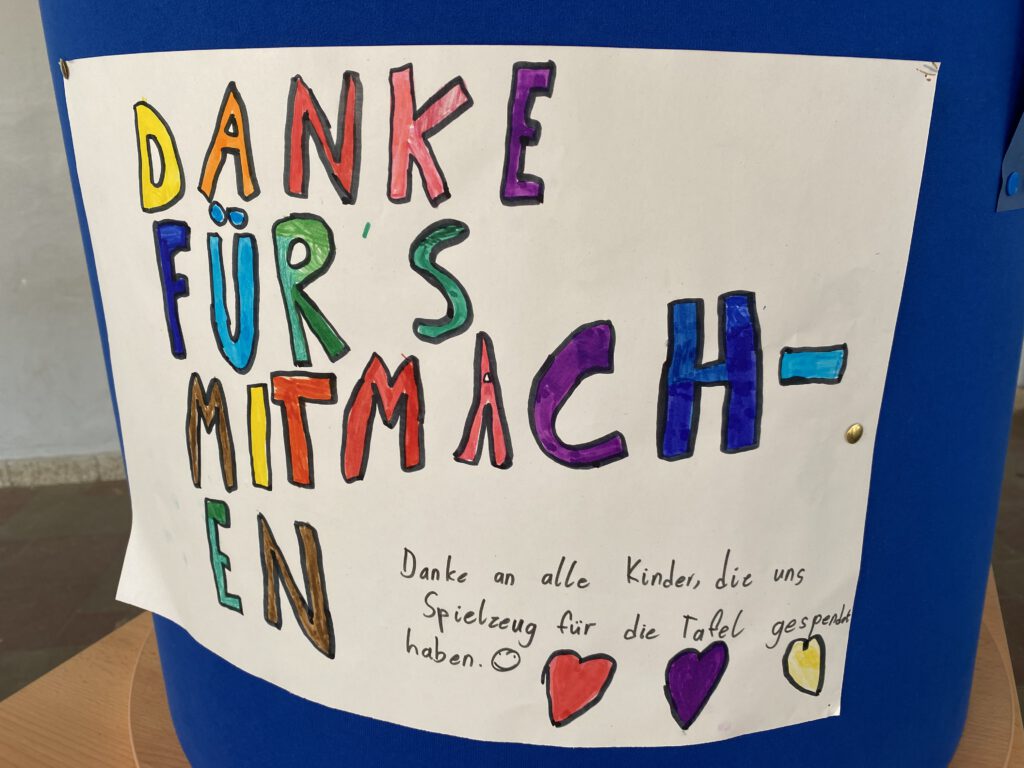 DANKE
FÜR'S
MITMACH-
EN
Danke an alle Kinder, die uns
Spielzeug für die Tafel gespendet
haben. ☺